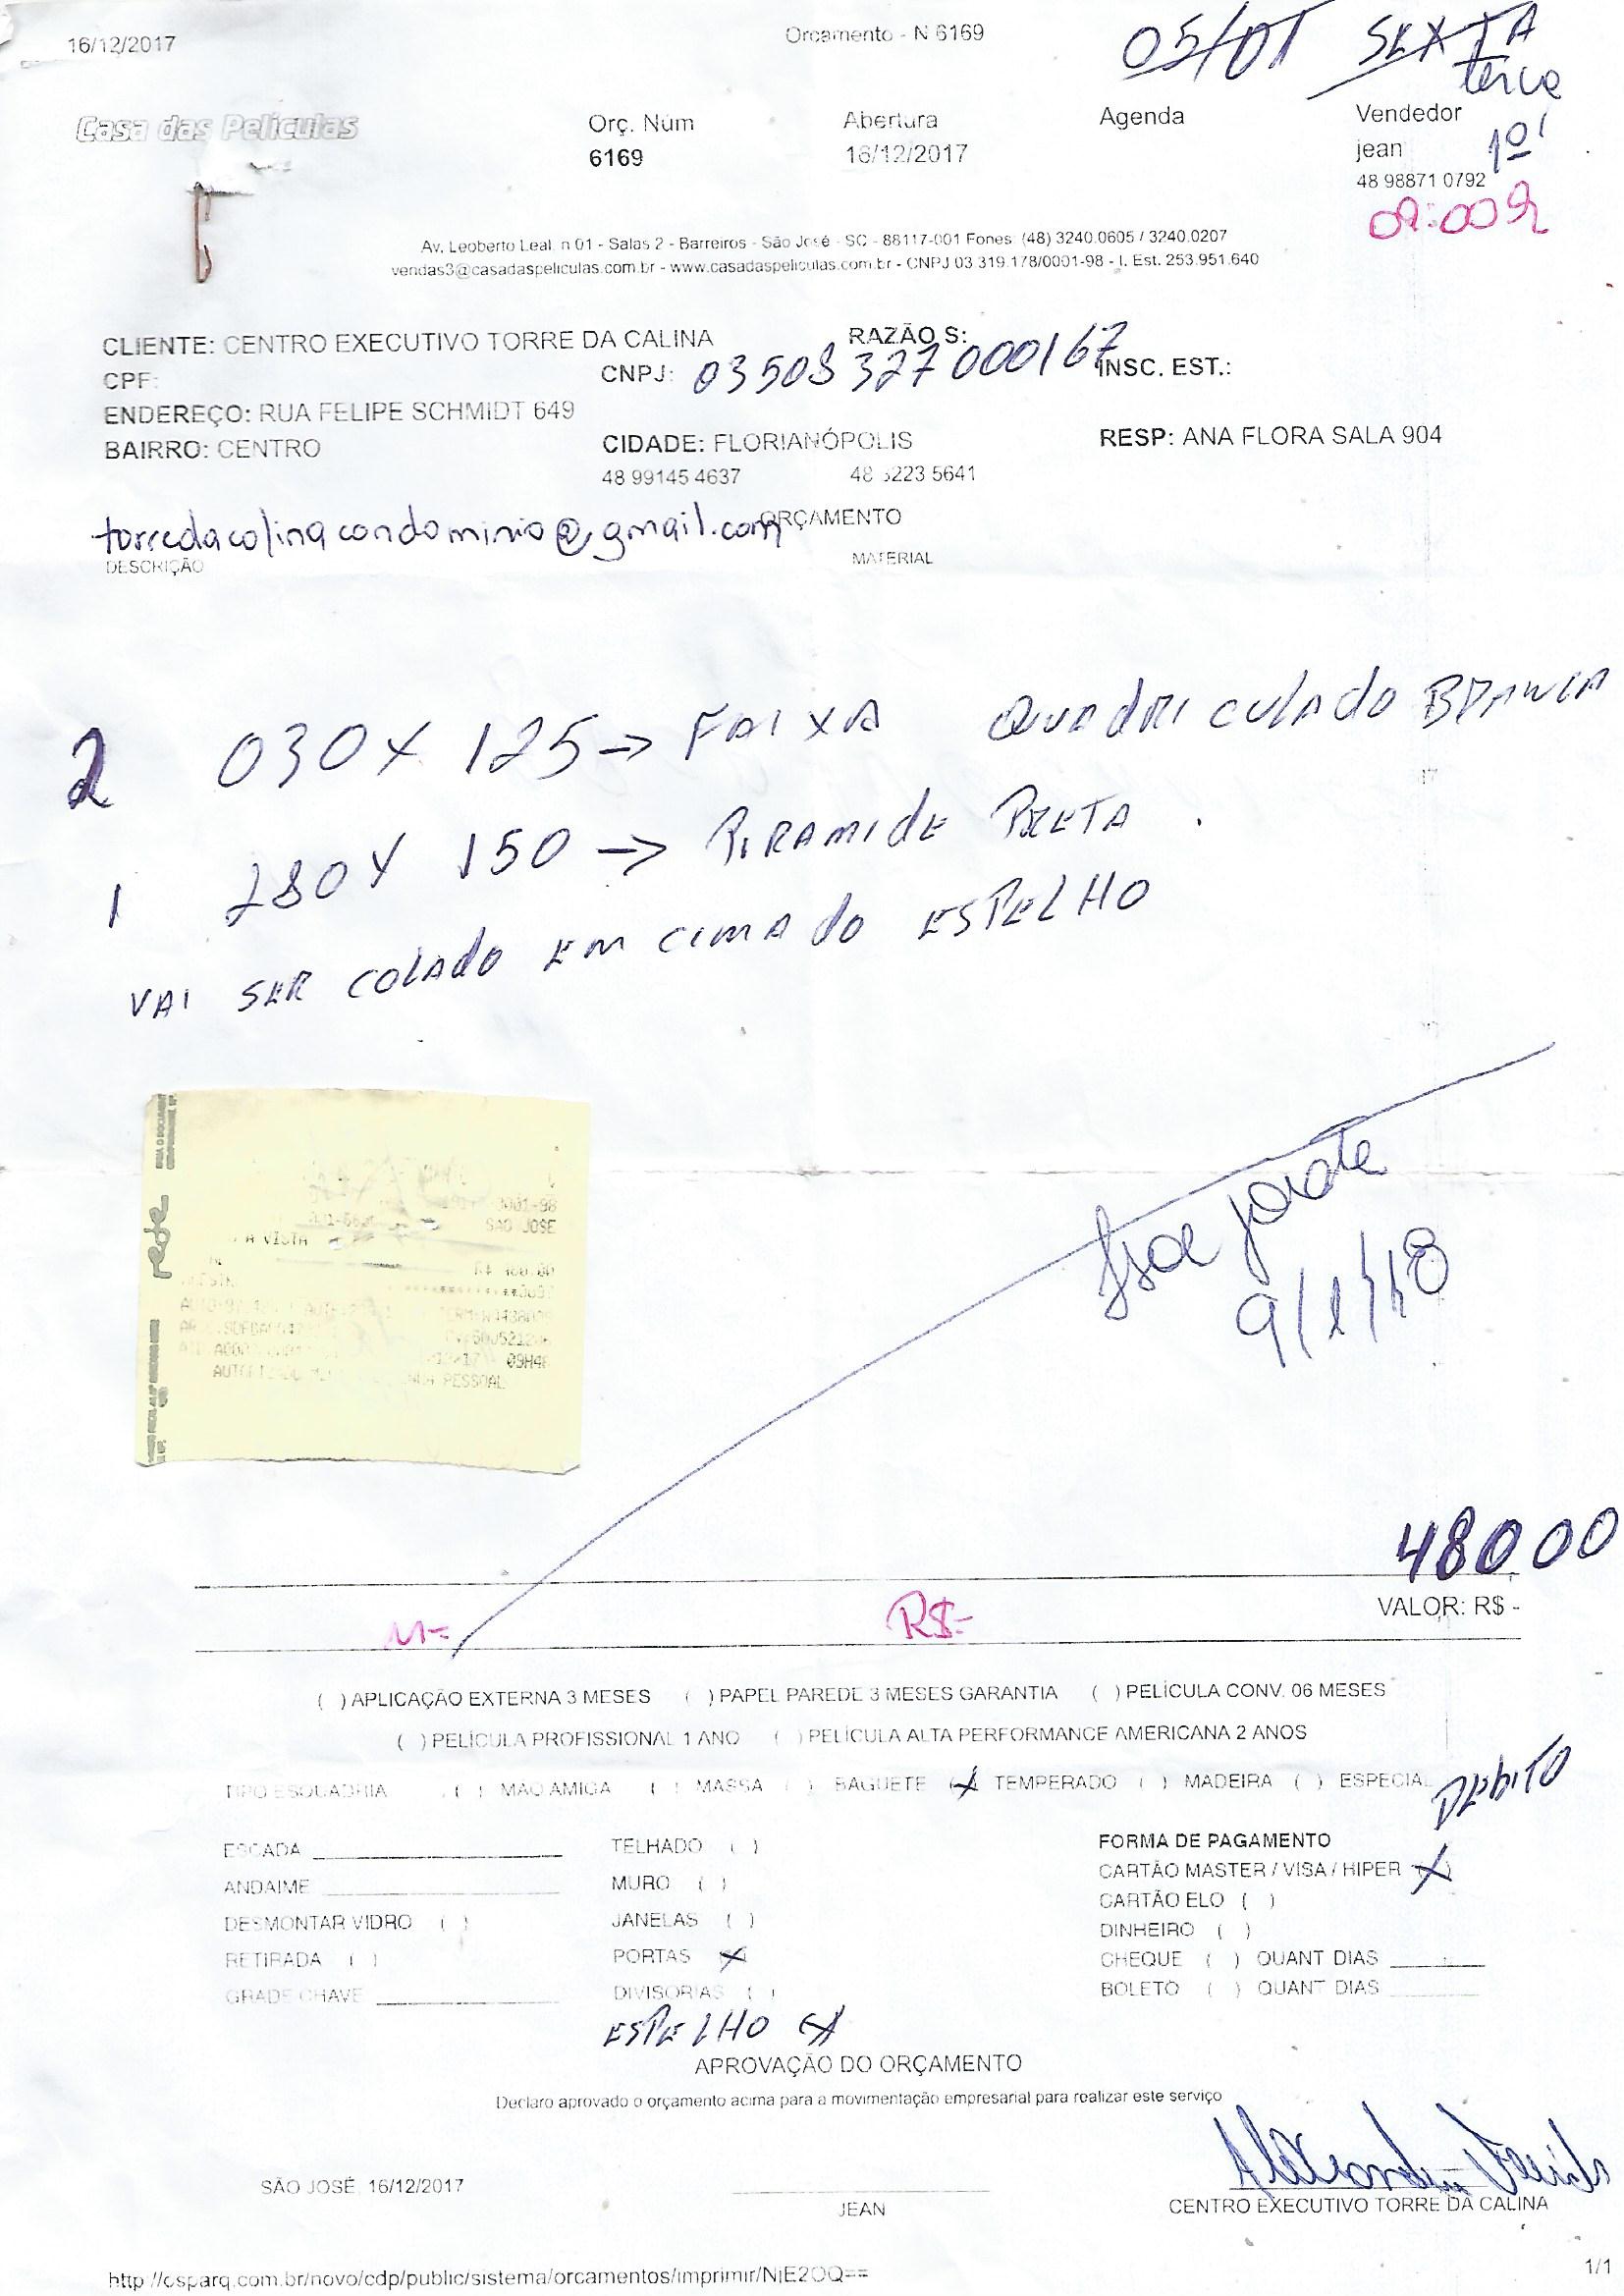 16/12/2017
Orcamento - N 6169
05/01 SEXTA
terça
Casa das Películas
Orç. Núm
6169
Abertura
16/12/2017
Agenda
Vendedor
jean
1º
48 98871 0792
Av. Leoberto Leal, n 01 - Salas 2 - Barreiros - São José - SC - 88117-001 Fones: (48) 3240.0605 / 3240.0207
vendas3@casadaspeliculas.com.br - www.casadaspeliculas.com.br - CNPJ 03.319.178/0001-98 - I. Est. 253.951.640
CLIENTE: CENTRO EXECUTIVO TORRE DA CALINA
RAZÃO S:
CPF:
CNPJ: 03508327000167
INSC. EST.:
ENDEREÇO: RUA FELIPE SCHMIDT 649
BAIRRO: CENTRO
CIDADE: FLORIANÓPOLIS
RESP: ANA FLORA SALA 904
48 99145 4637
48 3223 5641
torredacolinacondominio@gmail.com
ORÇAMENTO
DESCRIÇÃO
MATERIAL
2 030 X 125 → FAIXA QUADRICULADO BRANCA
1 280 X 150 → PIRAMIDE PRETA
VAI SER COLADO EM CIMA DO ESPELHO
rede
0001-98
SAO JOSE
A VISTA
09H48
PESSOAL
9/1/18
480,00
VALOR: R$ -
M=
R$-
( ) APLICAÇÃO EXTERNA 3 MESES ( ) PAPEL PAREDE 3 MESES GARANTIA ( ) PELÍCULA CONV. 06 MESES
( ) PELÍCULA PROFISSIONAL 1 ANO ( ) PELÍCULA ALTA PERFORMANCE AMERICANA 2 ANOS
TIPO ESQUADRIA ( ) MÃO AMIGA ( ) MASSA ( ) BAGUETE (X) TEMPERADO ( ) MADEIRA ( ) ESPECIAL
DEBITO
ESCADA
ANDAIME
DESMONTAR VIDRO ( )
RETIRADA ( )
GRADE CHAVE
TELHADO ( )
MURO ( )
JANELAS ( )
PORTAS (X)
DIVISORIAS ( )
ESPELHO (X)
FORMA DE PAGAMENTO
CARTÃO MASTER / VISA / HIPER (X)
CARTÃO ELO ( )
DINHEIRO ( )
CHEQUE ( ) QUANT DIAS
BOLETO ( ) QUANT DIAS
APROVAÇÃO DO ORÇAMENTO
Declaro aprovado o orçamento acima para a movimentação empresarial para realizar este serviço
SÃO JOSÉ, 16/12/2017
JEAN
CENTRO EXECUTIVO TORRE DA CALINA
http://osparq.com.br/novo/cdp/public/sistema/orcamentos/imprimir/NjE2OQ==
1/1